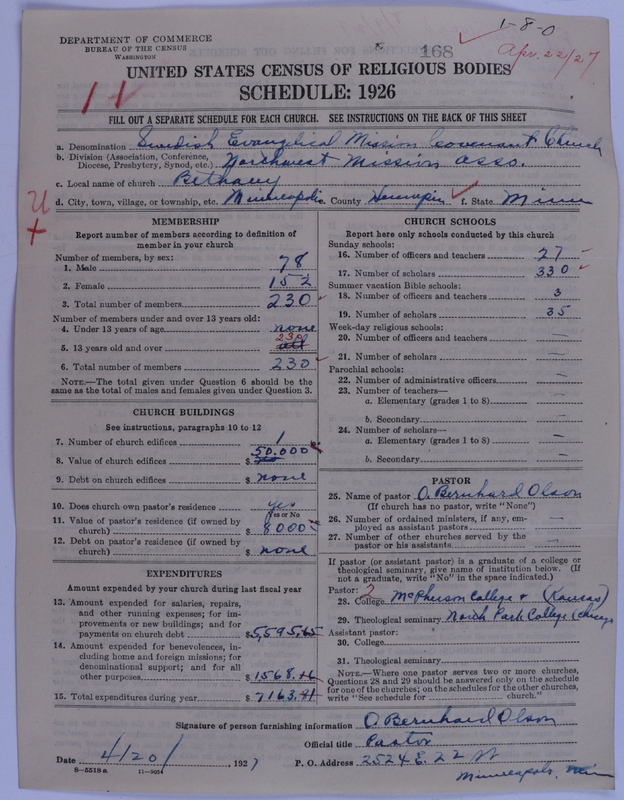 1-8-0
DEPARTMENT OF COMMERCE
BUREAU OF THE CENSUS
WASHINGTON
168
Apr. 22/27
UNITED STATES CENSUS OF RELIGIOUS BODIES
SCHEDULE: 1926
FILL OUT A SEPARATE SCHEDULE FOR EACH CHURCH. SEE INSTRUCTIONS ON THE BACK OF THIS SHEET
a. Denomination Swedish Evangelical Mission Covenant Church
b. Division (Association, Conference, Diocese, Presbytery, Synod, etc.) Northwest Mission Asso.
c. Local name of church Bethany
d. City, town, village, or township, etc. Minneapolis e. County Hennepin f. State Minn
MEMBERSHIP
Report number of members according to definition of
member in your church
Number of members, by sex:
1. Male 78
2. Female 152
3. Total number of members 230
Number of members under and over 13 years old:
4. Under 13 years of age none
5. 13 years old and over all 230
6. Total number of members 230
NOTE.—The total given under Question 6 should be the
same as the total of males and females given under Question 3.
CHURCH BUILDINGS
See instructions, paragraphs 10 to 12
7. Number of church edifices 1
8. Value of church edifices $ 50.000
9. Debt on church edifices $ none
10. Does church own pastor's residence? yes
Yes or No
11. Value of pastor's residence (if owned by
church) $ 8000
12. Debt on pastor's residence (if owned by
church) $ none
EXPENDITURES
Amount expended by your church during last fiscal year
13. Amount expended for salaries, repairs,
and other running expenses; for im-
provements or new buildings; and for
payments on church debt $ 5,595.65
14. Amount expended for benevolences, in-
cluding home and foreign missions; for
denominational support; and for all
other purposes $ 1568.
15. Total expenditures during year $ 7163.41
CHURCH SCHOOLS
Report here only schools conducted by this church
Sunday schools:
16. Number of officers and teachers 27
17. Number of scholars 330
Summer vacation Bible schools:
18. Number of officers and teachers 3
19. Number of scholars 35
Week-day religious schools:
20. Number of officers and teachers —
21. Number of scholars —
Parochial schools:
22. Number of administrative officers —
23. Number of teachers—
a. Elementary (grades 1 to 8) —
b. Secondary —
24. Number of scholars—
a. Elementary (grades 1 to 8) —
b. Secondary —
PASTOR
25. Name of pastor O. Bernhard Olson
(If church has no pastor, write "None")
26. Number of ordained ministers, if any, em-
ployed as assistant pastors —
27. Number of other churches served by the
pastor or his assistants —
If pastor (or assistant pastor) is a graduate of a college or
theological seminary, give name of institution below. (If
not a graduate, write "No" in the space indicated.)
Pastor: 2
28. College McPherson College + (Kansas)
29. Theological seminary North Park College (Chicago
Assistant pastor:
30. College
31. Theological seminary
NOTE.—Where one pastor serves two or more churches,
Questions 28 and 29 should be answered only on the schedule
for one of the churches; on the schedules for the other churches,
write "See schedule for church."
Signature of person furnishing information O. Bernhard Olson
Official title Pastor
Date 4/20/, 1927 P. O. Address 2524 E. 22 St
8—5518a 11—9054 Minneapolis, Minn